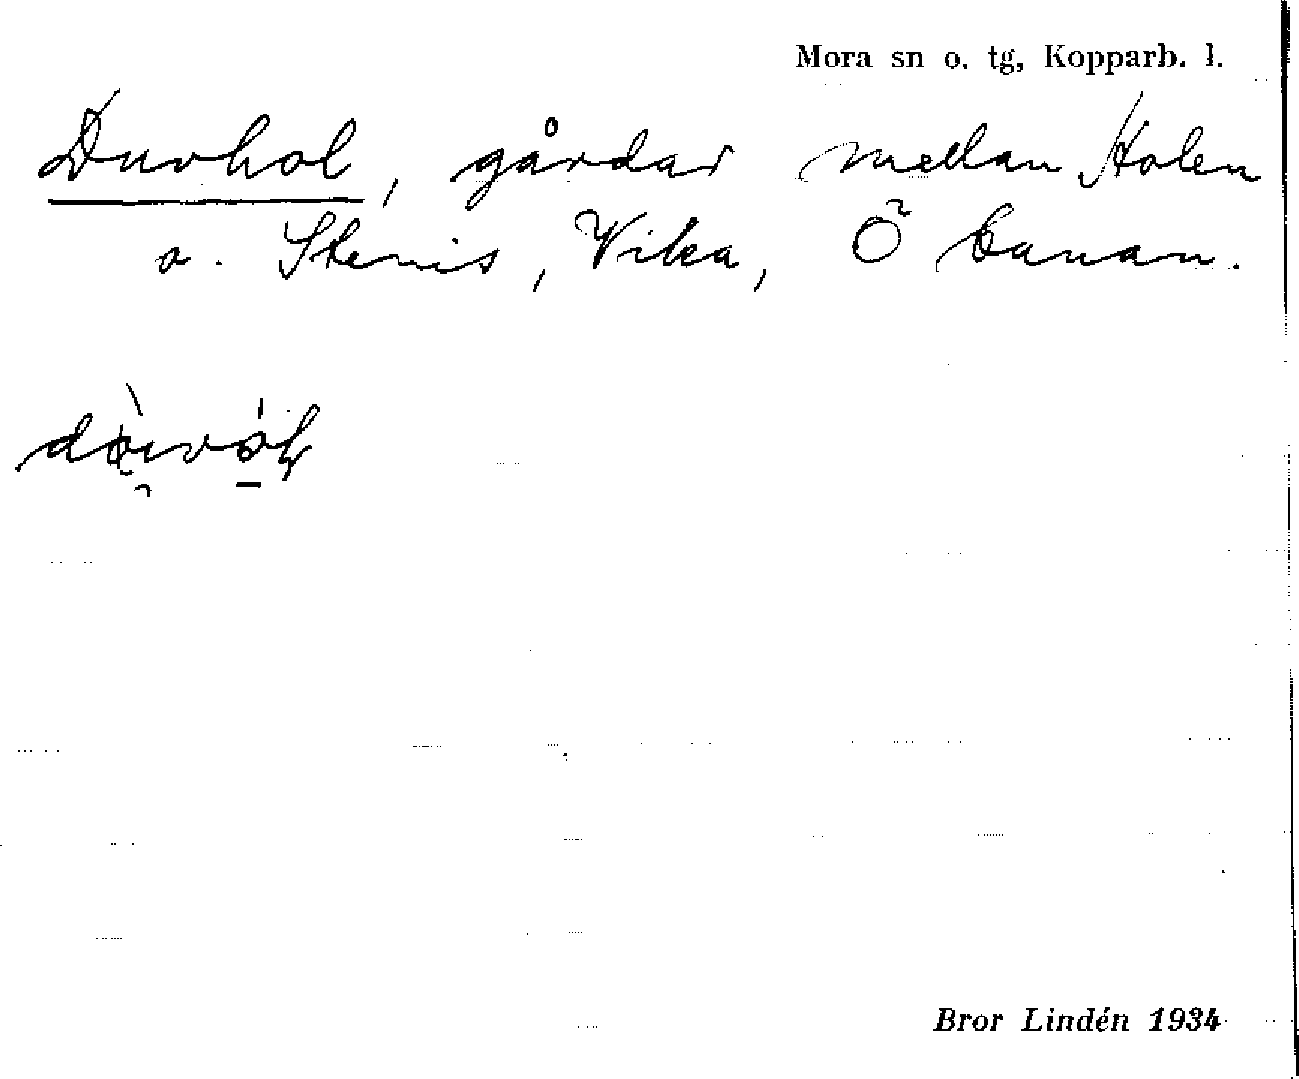 Mora sn o. tg, Kopparb. l.
Duvhol, gårdar mellan Holen
o. Stenis, Vika, Ö banan.
Bror Lindén 1934